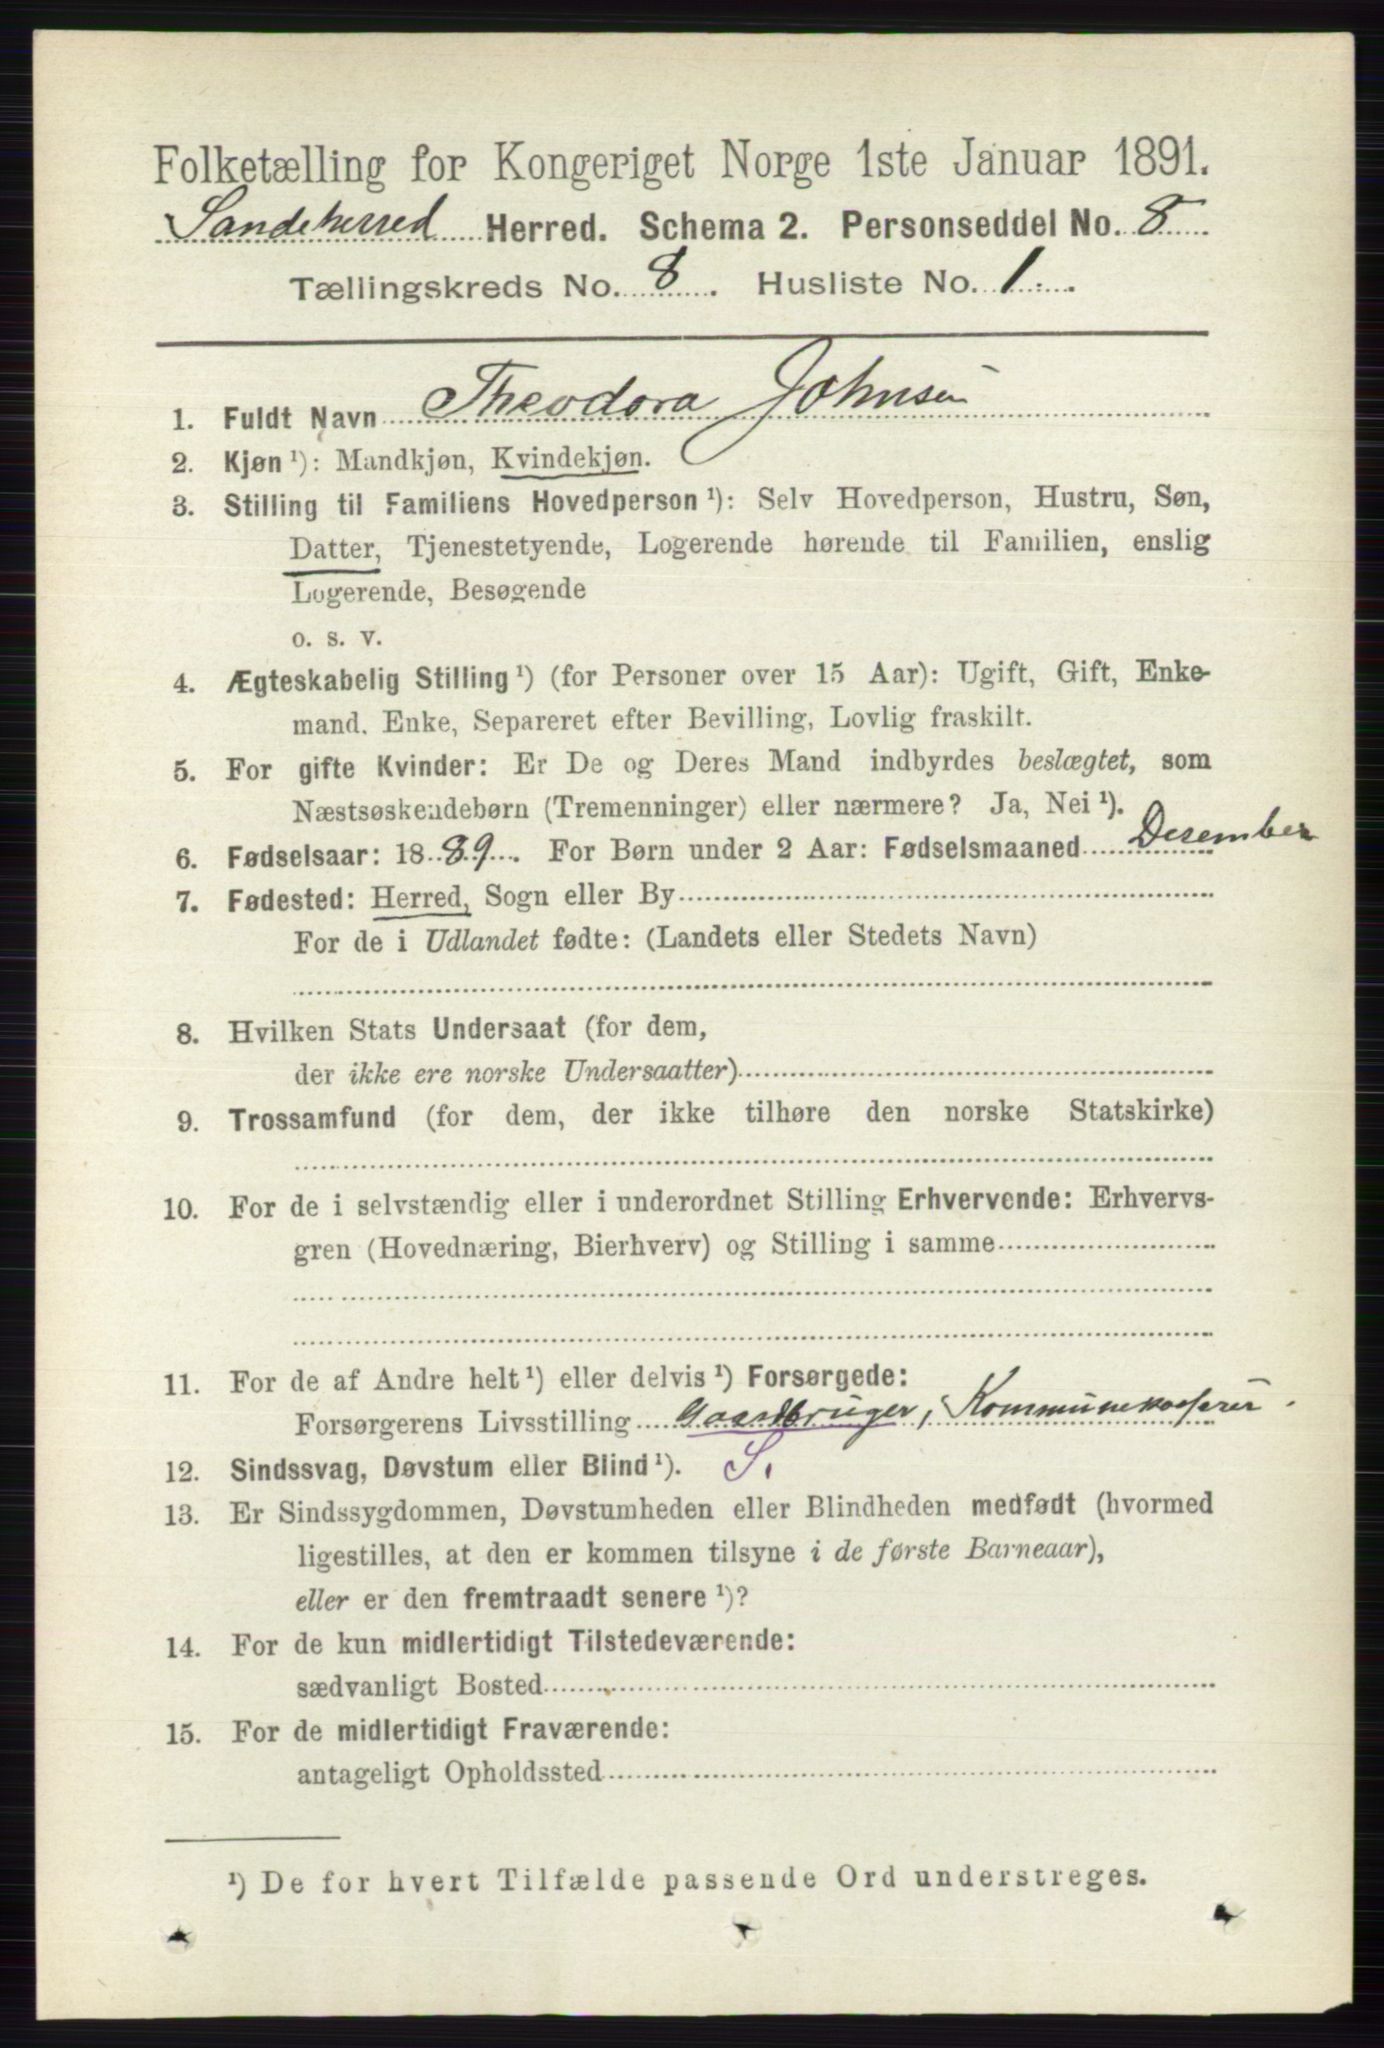 Folketælling for Kongeriget Norge 1ste Januar 1891.
Sandeherred Herred. Schema 2. Personseddel No. 8
Tællingskreds No. 8. Husliste No. 1.
1. Fuldt Navn Theodora Johnsen
2. Kjøn ¹): Mandkjøn, Kvindekjøn.
3. Stilling til Familiens Hovedperson ¹): Selv Hovedperson, Hustru, Søn,
Datter, Tjenestetyende, Logerende hørende til Familien, enslig
Logerende, Besøgende
o. s. v.
4. Ægteskabelig Stilling ¹) (for Personer over 15 Aar): Ugift, Gift, Enke-
mand. Enke, Separeret efter Bevilling, Lovlig fraskilt.
5. For gifte Kvinder: Er De og Deres Mand indbyrdes beslægtet, som
Næstsøskendebørn (Tremenninger) eller nærmere? Ja, Nei ¹).
6. Fødselsaar: 1889. For Børn under 2 Aar: Fødselsmaaned Desember
7. Fødested: Herred, Sogn eller By
For de i Udlandet fødte: (Landets eller Stedets Navn)
8. Hvilken Stats Undersaat (for dem,
der ikke ere norske Undersaatter)
9. Trossamfund (for dem, der ikke tilhøre den norske Statskirke)
10. For de i selvstændig eller i underordnet Stilling Erhvervende: Erhvervs-
gren (Hovednæring, Bierhverv) og Stilling i samme
11. For de af Andre helt ¹) eller delvis ¹) Forsørgede:
Forsørgerens Livsstilling Gaardbruger, Kommunekasserer.
12. Sindssvag, Døvstum eller Blind ¹). S.
13. Er Sindssygdommen, Døvstumheden eller Blindheden medfødt (hvormed
ligestilles, at den er kommen tilsyne i de første Barneaar),
eller er den fremtraadt senere ¹)?
14. For de kun midlertidigt Tilstedeværende:
sædvanligt Bosted
15. For de midlertidigt Fraværende:
antageligt Opholdssted
¹) De for hvert Tilfælde passende Ord understreges.